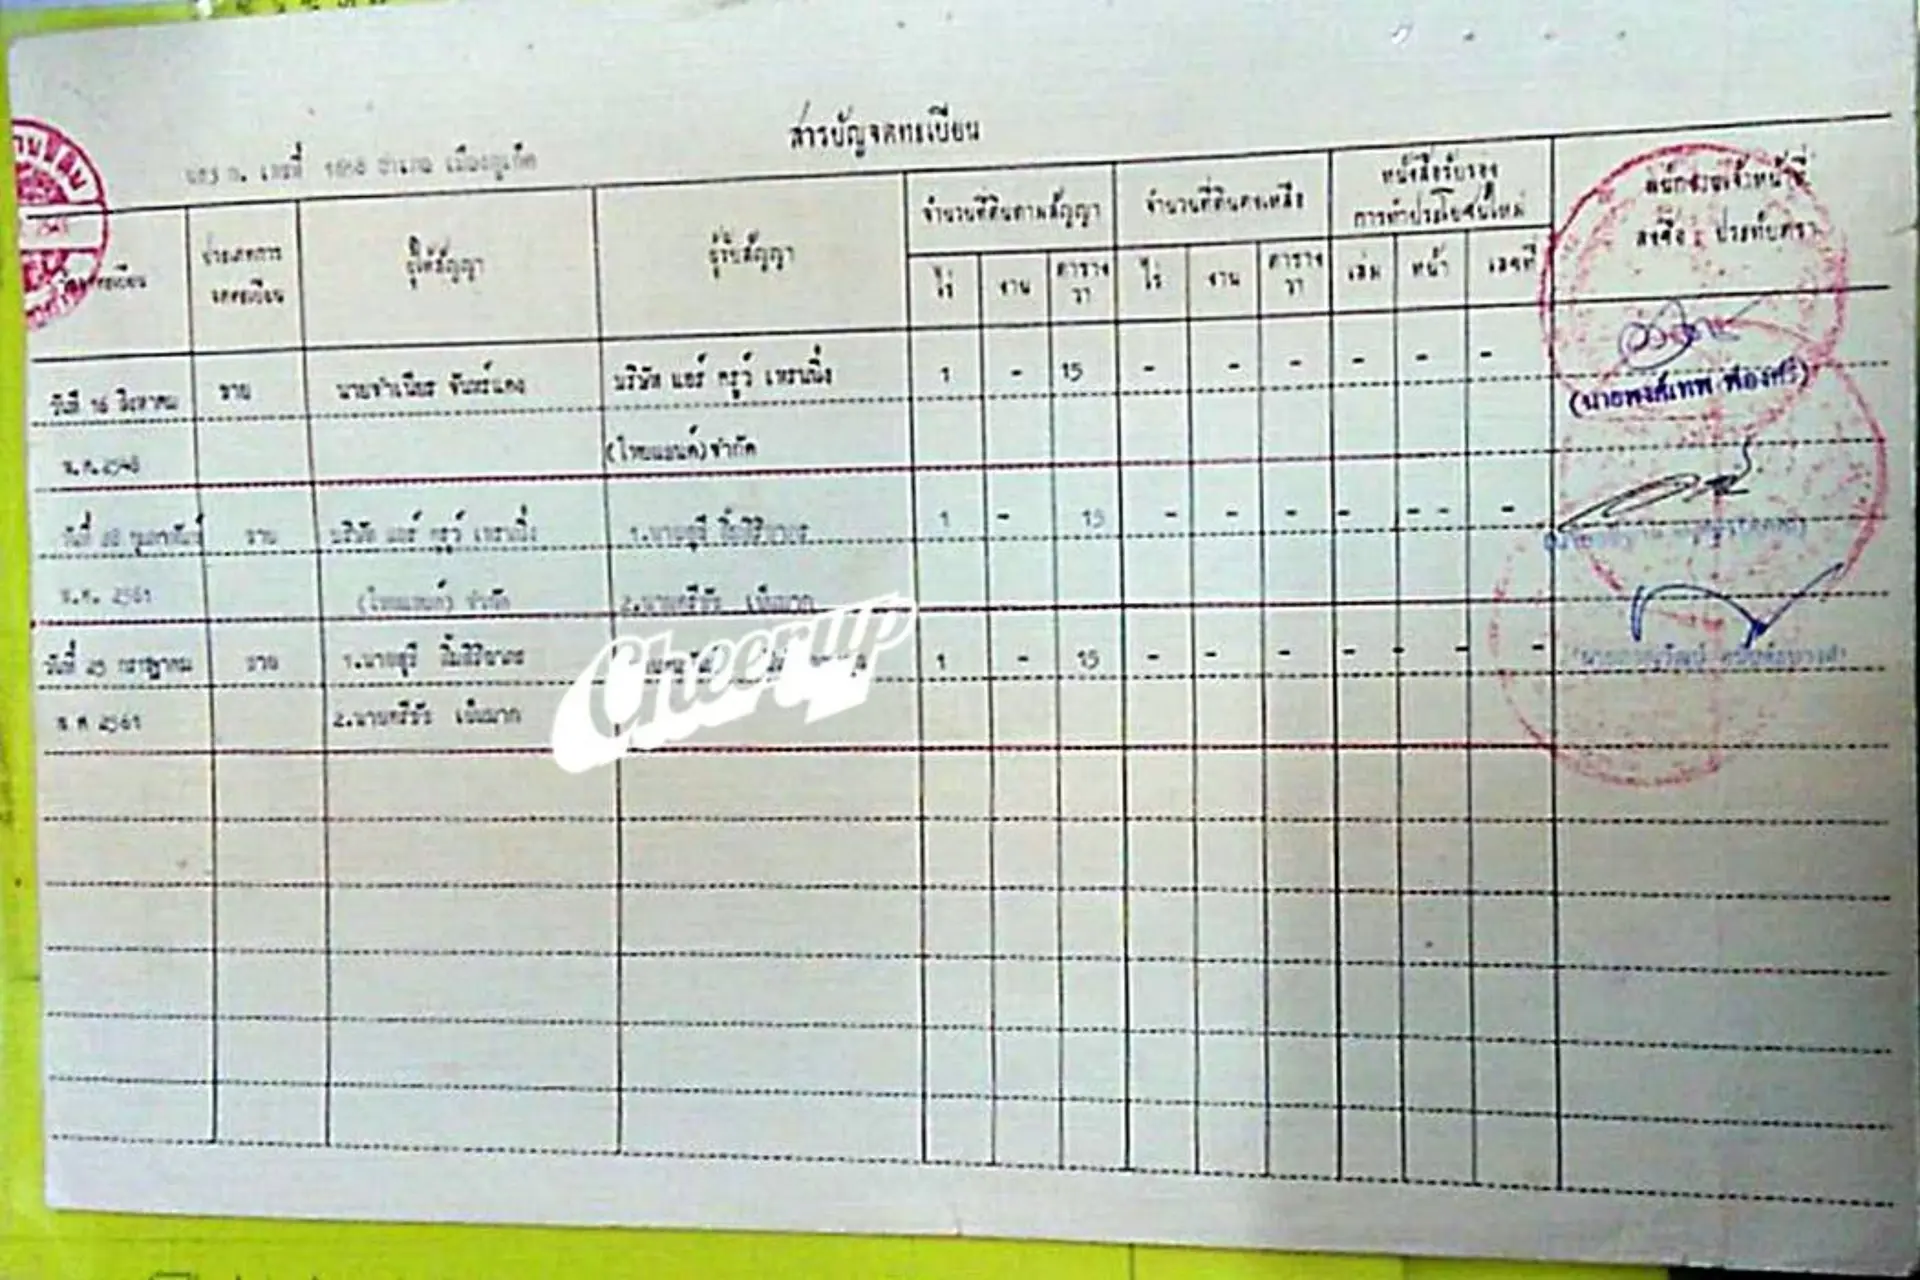 สารบัญจดทะเบียน
นส3 ก. เลขที่ อำเภอ เมืองภูเก็ต
จดทะเบียน
ประเภทการ
จดทะเบียน
ผู้ให้สัญญา
ผู้รับสัญญา
จำนวนที่ดินตามสัญญา
จำนวนที่ดินคงเหลือ
หนังสือรับรอง
การทำประโยชน์ใหม่
พนักงานเจ้าหน้าที่
ลงชื่อ ประทับตรา
ไร่ งาน ตาราง
วา
ไร่ งาน ตาราง
วา
เล่ม หน้า เลขที่
วันที่ 16 สิงหาคม ขาย นายจำเนียร จันทร์แดง บริษัท แอร์ ครูว์ เทรนนิ่ง 1 - 15 - - - - - -
(นายพงศ์เทพ ทองศรี)
พ.ศ.2548 (ไทยแลนด์)จำกัด
วันที่ กุมภาพันธ์ ขาย บริษัท แอร์ ครูว์ เทรนนิ่ง 1.นายสุรี 1 - 15 - - - - - - -
พ.ศ. 2561 (ไทยแลนด์) จำกัด 2.นายศรีชัย เย็นมาก
วันที่ 25 กรกฎาคม ขาย 1.นายสุรี 1 - 15 - - - - - -
พ ศ 2561 2.นายศรีชัย เย็นมาก
Cheerup